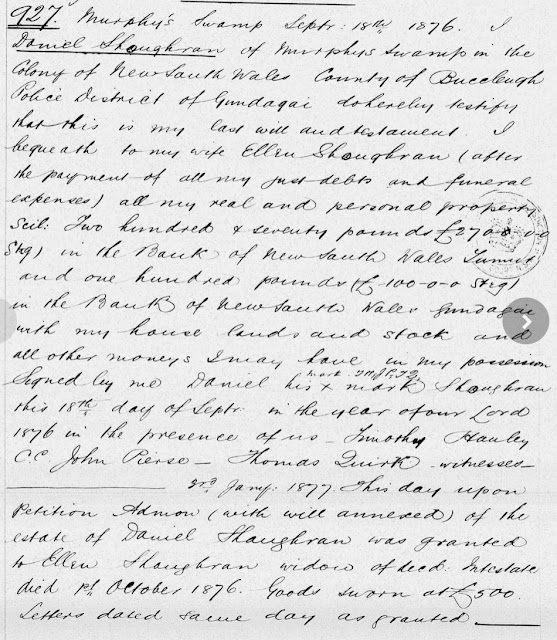 927. Murphy's Swamp Septr: 18th 1876. I
Daniel Shoughran of Murphy's Swamp in the
Colony of New South Wales County of Buccleugh
Police District of Gundagai do hereby testify
that this is my last will and testament. I
bequeath to my wife Ellen Shoughran (after
the payment of all my just debts and funeral
expenses) all my real and personal property
Scil: Two hundred & seventy pounds £270-0-0
Stg) in the Bank of New South Wales Tumut
and one hundred pounds (£100-0-0 Strg)
in the Bank of New South Wales Gundagai
with my house lands and stock and
all other moneys I may have in my possession
Signed by me Daniel his x mark Shoughran
this 18th day of Septr. in the year of our Lord
1876 in the presence of us - Timothy Hauley
C.C. John Pierse - Thomas Quirk - witnesses -
3rd Jany: 1877 This day upon
Petition Admon (with will annexed) of the
estate of Daniel Shaughran was granted
to Ellen Shaughran widow of decd. Intestate
died October 1876. Goods sworn at £500.
Letters dated same day as granted